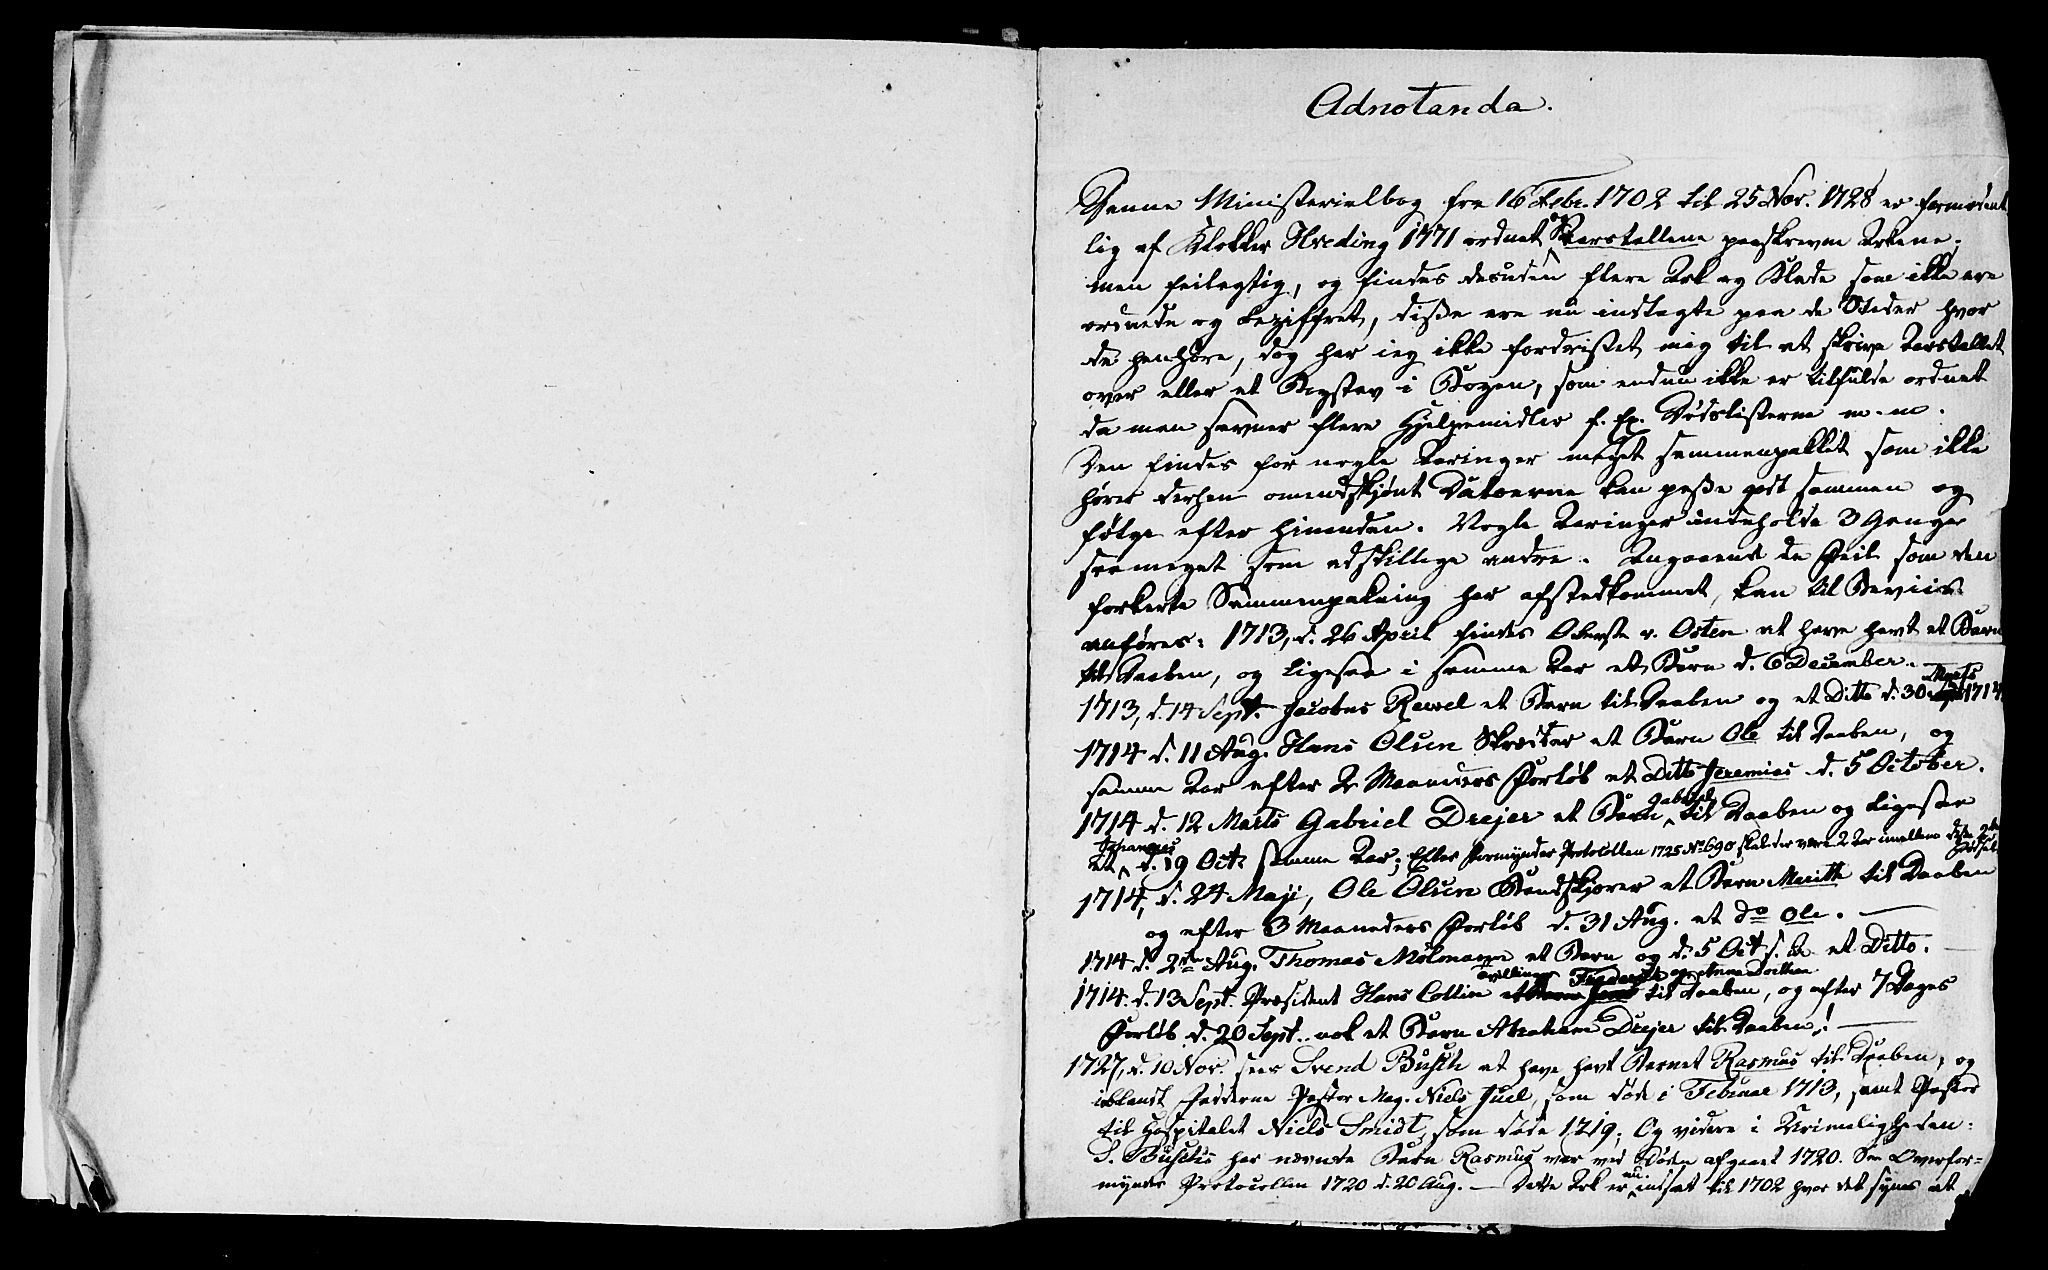 Adnotanda.
Denne Ministerialbog fra 16 Febr. 1702 til 25 Nov. 1728 er formodent
lig af Klokker Hveding 1771 ordnet og Aarstallene paaskrevne Arkene;
men feilagtig, og findes desuden flere Ark og Blade som ikke ere
ordnede og beziffret, disse ere nu indlagte paa de Steder hvor
de henhøre, dog har ieg ikke fordristet mig til at skrive Aarstallet
over eller et Bogstav i Bogen, som endnu ikke er tilfulde ordnet
da man savner flere Hjelpemidler f. Ex. Dødslisterne m. m.
Den findes for nogle Aaringer meget sammenpakket som ikke
hører derhen omendskjønt Datoerne kan passe godt sammen og
følge efter hinanden. Nogle Aaringer indeholde 3 Gange
saa meget som adskillige andre. Angaaende de Feil som den
forkerte Sammenpakning har afstedkommet, kan til Beviis
anføres: 1713, d. 26 April findes Oberste v. Osten at have havt et Barn
til Daaben, og ligesaa i samme Aar et Barn d. 6 December.
1713, d. 14 Sept. Jacobus Rewel et Barn til Daaben og et Ditto d. 30 Marts 1714
1714 d. 11 Aug. Hans Olsen Skræder et Barn Ole til Daaben, og
samme Aar efter 2 Maaneders Forløb et Ditto Jeremias d. 5 October.
1714 d. 12 Marts Gabriel Drejer et Barn Gabriel til Daaben og ligesaa
et Johannes d. 19 Oct. samme Aar; Efter Formynder Protocollen 1725 No 690 skal der være 2 Aar imellem disse 2de Fødsel
1714, d. 24 Maji, Ole Olsen Bundskjærer et Barn Maritte til Daaben
og efter 3 Maaneders Forløb d. 31 Aug. et do Ole.
1714 d. 2den Aug. Thomas Molmann et Barn og d. 5 Oct. s. A. et Ditto.
1714 d. 13 Sept. Præsident Hans Collin tvillinger Frederik og Anna Dorthea til Daaben, og efter 7 Dages
Forløb d. 20 Sept. nok et Barn Abraham Drejer til Daaben!
1727, d. 10 Nov. sees Svend Busch at have havt Barnet Rasmus til Daaben, og
iblandt Fadderne Pastor Mag. Niels Juel, som døde i Februar 1713, samt Pastor
til Hospitalet Niels Smidt, som døde 1719; Og videre i Urimeligheden:
S. Buschs her nævnte Barn Rasmus var ved Døden afgaaet 1720. See Overfor-
mynder Protocollen 1720 d. 20 Aug. — Dette Ark er nu indsat til 1702 hvor det synes at